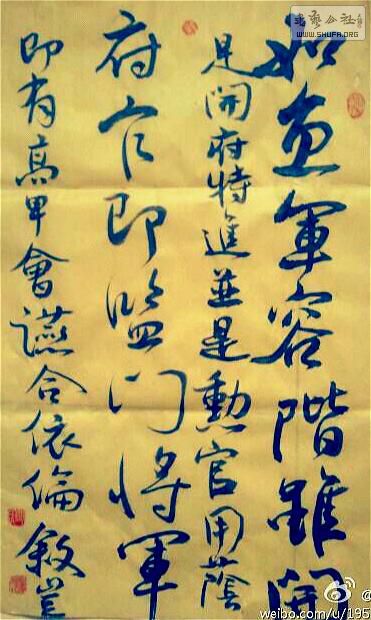 如魚軍容階雖開
是開府特進並是勳官用蔭
府官即監門將軍
即有高卑會讌合依倫敘豈
書藝公社
WWW.SHUFA.ORG
@
weibo.com/u/195